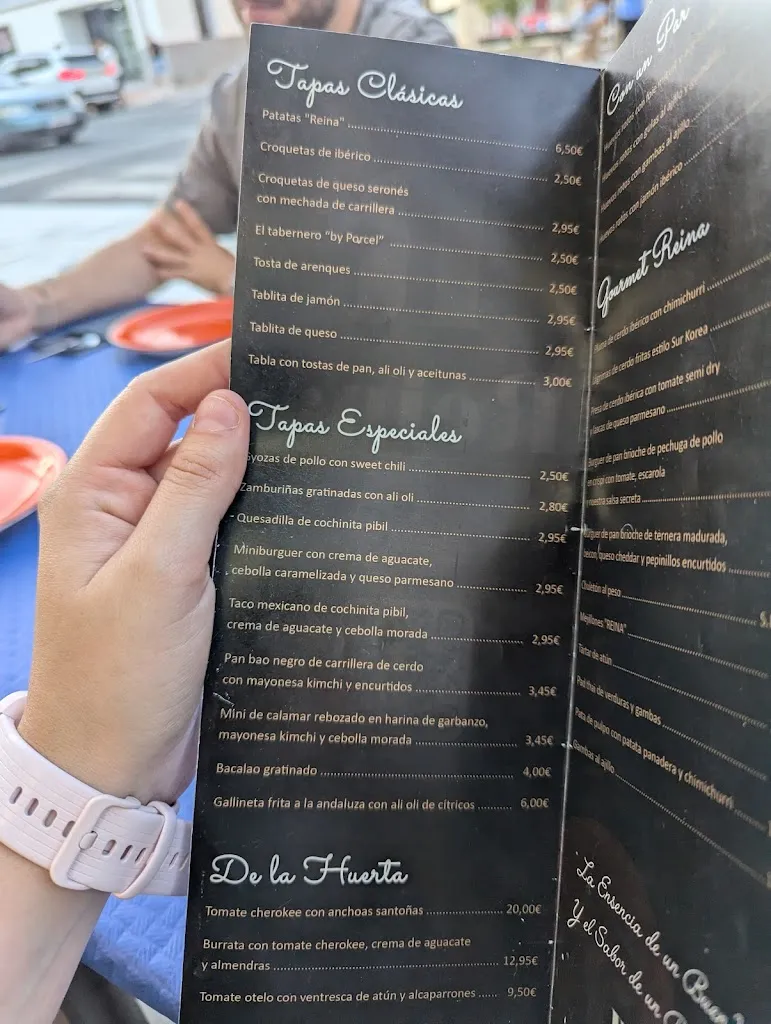 Tapas Clásicas
Patatas "Reina" 6,50€
Croquetas de ibérico 2,50€
Croquetas de queso seronés
con mechada de carrillera 2,95€
El tabernero "by Parcel" 2,50€
Tosta de arenques 2,50€
Tablita de jamón 2,95€
Tablita de queso 2,95€
Tabla con tostas de pan, ali oli y aceitunas 3,00€
Tapas Especiales
Gyozas de pollo con sweet chili 2,50€
Zamburiñas gratinadas con ali oli 2,80€
Quesadilla de cochinita pibil 2,95€
Miniburguer con crema de aguacate,
cebolla caramelizada y queso parmesano 2,95€
Taco mexicano de cochinita pibil,
crema de aguacate y cebolla morada 2,95€
Pan bao negro de carrillera de cerdo
con mayonesa kimchi y encurtidos 3,45€
Mini de calamar rebozado en harina de garbanzo,
mayonesa kimchi y cebolla morada 3,45€
Bacalao gratinado 4,00€
Gallineta frita a la andaluza con ali oli de cítricos 6,00€
De la Huerta
Tomate cherokee con anchoas santoñas 20,00€
Burrata con tomate cherokee, crema de aguacate
y almendras 12,95€
Tomate otelo con ventresca de atún y alcaparrones 9,50€
Con un Par
Huevos rotos con
Huevos rotos con gulas al ajillo
Huevos rotos con gambas al ajillo
Huevos rotos con jamón ibérico
Gourmet Reina
de cerdo ibérico con chimichurri
de cerdo fritas estilo Sur Korea
Presa de cerdo ibérico con tomate semi dry
y lascas de queso parmesano
Burguer de pan brioche de pechuga de pollo
crispi con tomate, escarola
y nuestra salsa secreta
Burguer de pan brioche de ternera madurada,
beicon, queso cheddar y pepinillos encurtidos
Chuletón al peso
Mejillones "REINA"
Tartar de atún
Pad thai de verduras y gambas
Pata de pulpo con patata panadera y chimichurri
Gambas al ajillo
La Ensencia de un Buen
Y el Sabor de un